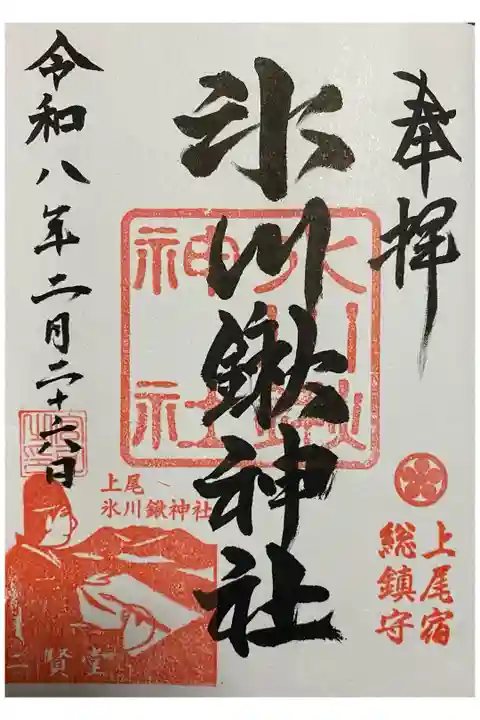 奉拝
氷川鍬神社
令和八年二月二十六日
氷川鍬神社
上尾宿
総鎮守
上尾
氷川鍬神社
二賢堂